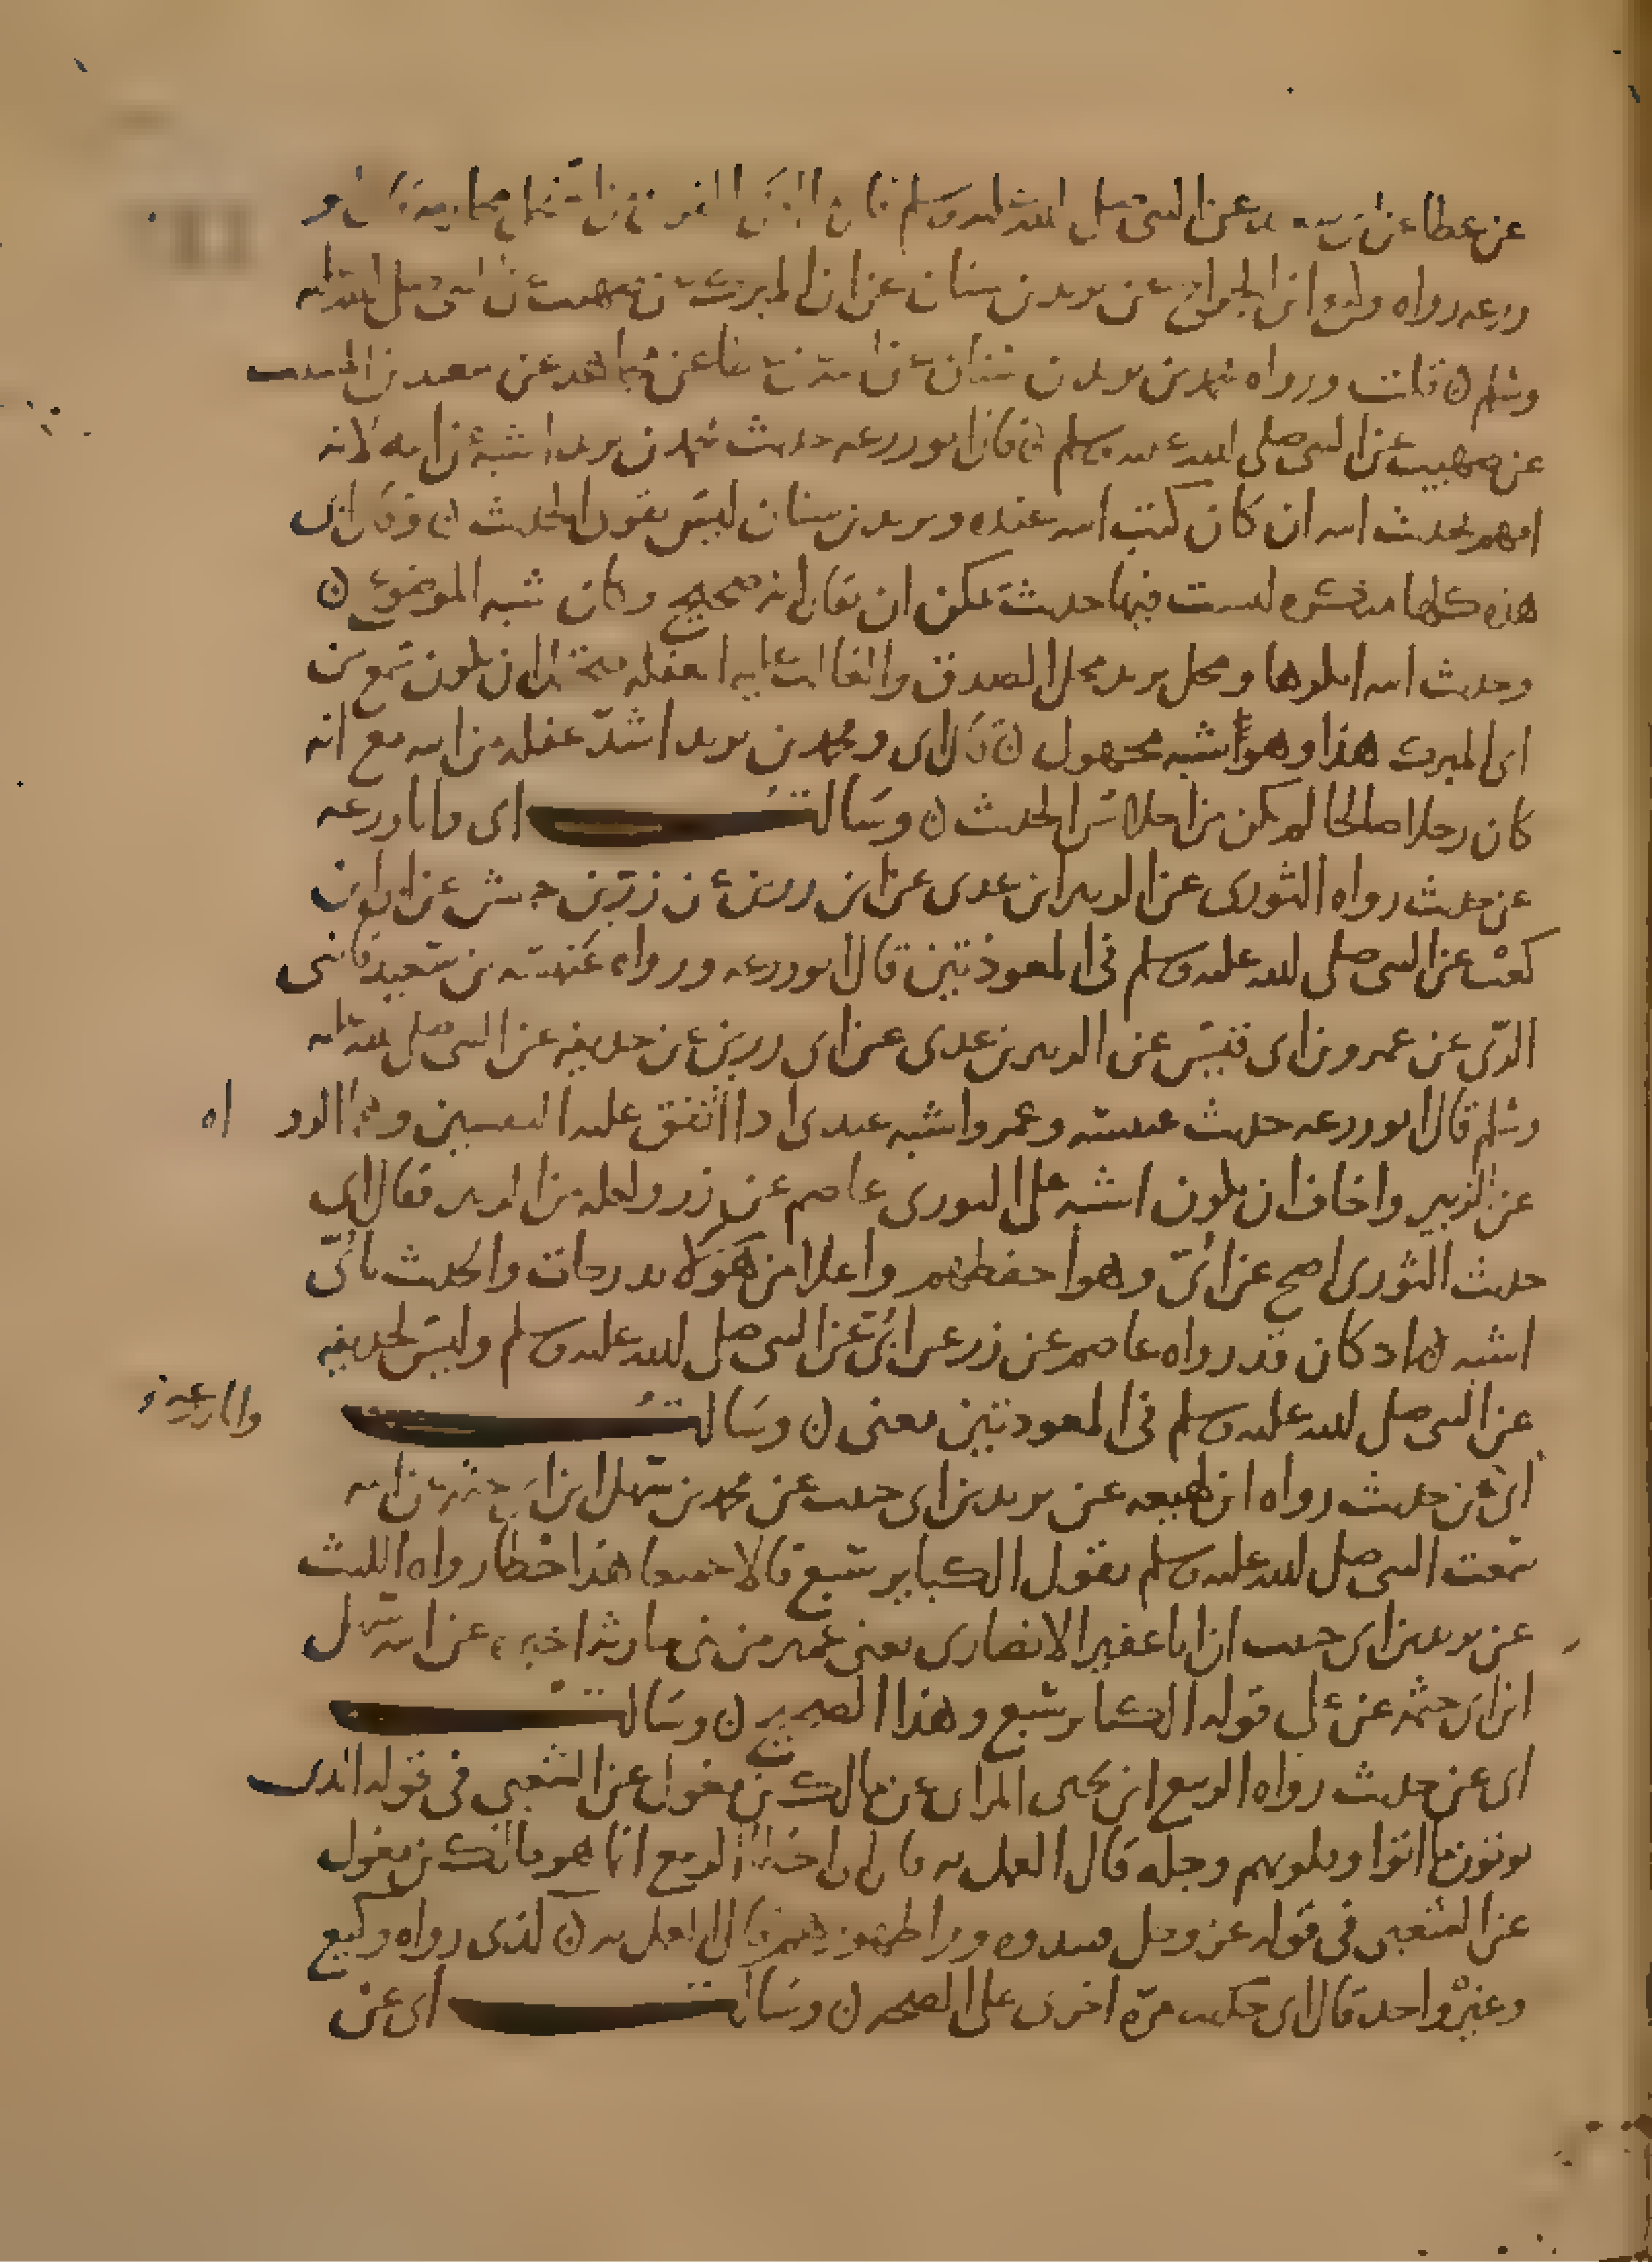 عن عطاء عن ابي سعيد عن النبي صلى الله عليه وسلم قال ما امن بالقران من استحل محارمه قال ابو
زرعه رواه وكيع ابن الجراح عن يزيد بن سنان عن ابي المبرك عن صهيب عن النبي صلى الله عليه
وسلم ن قلت ورواه محمد بن يزيد بن سنان عن ابيه عن عطا عن مجاهد عن سعيد بن المسيب
عن صهيب عن النبي صلى الله عليه وسلم ن قال ابو زرعه حديث محمد بن يزيد اشبه عن ابيه لانه
افهم بحديث ابيه ان كان كتب ابيه عنده ويزيد بن سنان ليس بقوي الحديث ن وقال ابي
هذه كلها منكره ليست فيها حديث يمكن ان يقال انه صحيح وكان شبه الموضوع ن
وحديث ابيه انكرها ومحل يزيد محل الصدق والغالب عليه الغفله يحتمل ان يكون سمع من
ابي المبرك هذا وهو شبه مجهول ن قال ابي ومحمد بن يزيد اشد غفله من ابيه مع انه
كان رجلا صالحا لم يكن من احلاس الحديث ن وسالت ابي وابا زرعه
عن حديث رواه الثوري عن الزبير ابن عدي عن ابي رزين عن زر بن حبيش عن ابي بن
كعب عن النبي صلى الله عليه وسلم في المعوذتين قال ابو زرعه ورواه عنبسه بن سعيد قاضي
الري عن عمرو بن ابي قيس عن الزبير بن عدي عن ابي رزين عن حذيفه عن النبي صلى الله عليه
وسلم قال ابو زرعه حديث عنبسه وعمرو اشبه عندي اذا اتفق عليه النفسين وهما الرو اه
عن الزبير واخاف ان يكون اشبه على الثوري عاصم عن زر ولعله من الزبير فقال ابي
حديث الثوري اصح عن ابي وهو احفظهم واعلا من هؤلاء بدرجات والحديث بابي
اشبه ن اذ كان قد رواه عاصم عن زر عن ابي عن النبي صلى الله عليه وسلم وليس لحذيفه
عن النبي صلى الله عليه وسلم في المعوذتين معنى ن وسالت
وابا زرعه
ابي عن حديث رواه ابن لهيعه عن يزيد بن ابي حبيب عن محمد بن سهل ابن ابي حثمه عن ابيه
سمعت النبي صلى الله عليه وسلم يقول الكباير سبع قالا جميعا هذا خطا رواه الليث
عن يزيد بن ابي حبيب ان ابا عفير الانصاري يعني عمير من بني حارثه اخبره عن ابيه سهل
ابن ابي حثمه عن علي قوله الكباير سبع وهذا الصحيح ن وسالت
ابي عن حديث رواه الربيع ابن يحيى المراي عن مالك بن مغول عن الشعبي في قوله الذين
يوتون ما اتوا وقلوبهم وجله قال العمل به قال ابي اخطا الربيع انما هو مالك بن مغول
عن الشعبي في قوله عز وجل فنبذوه ورا ظهورهم قال العمل به ن كذى رواه وكيع
وغير واحد قال ابي حكيت مرة اخرى على الصحه ن وسالت ابي عن